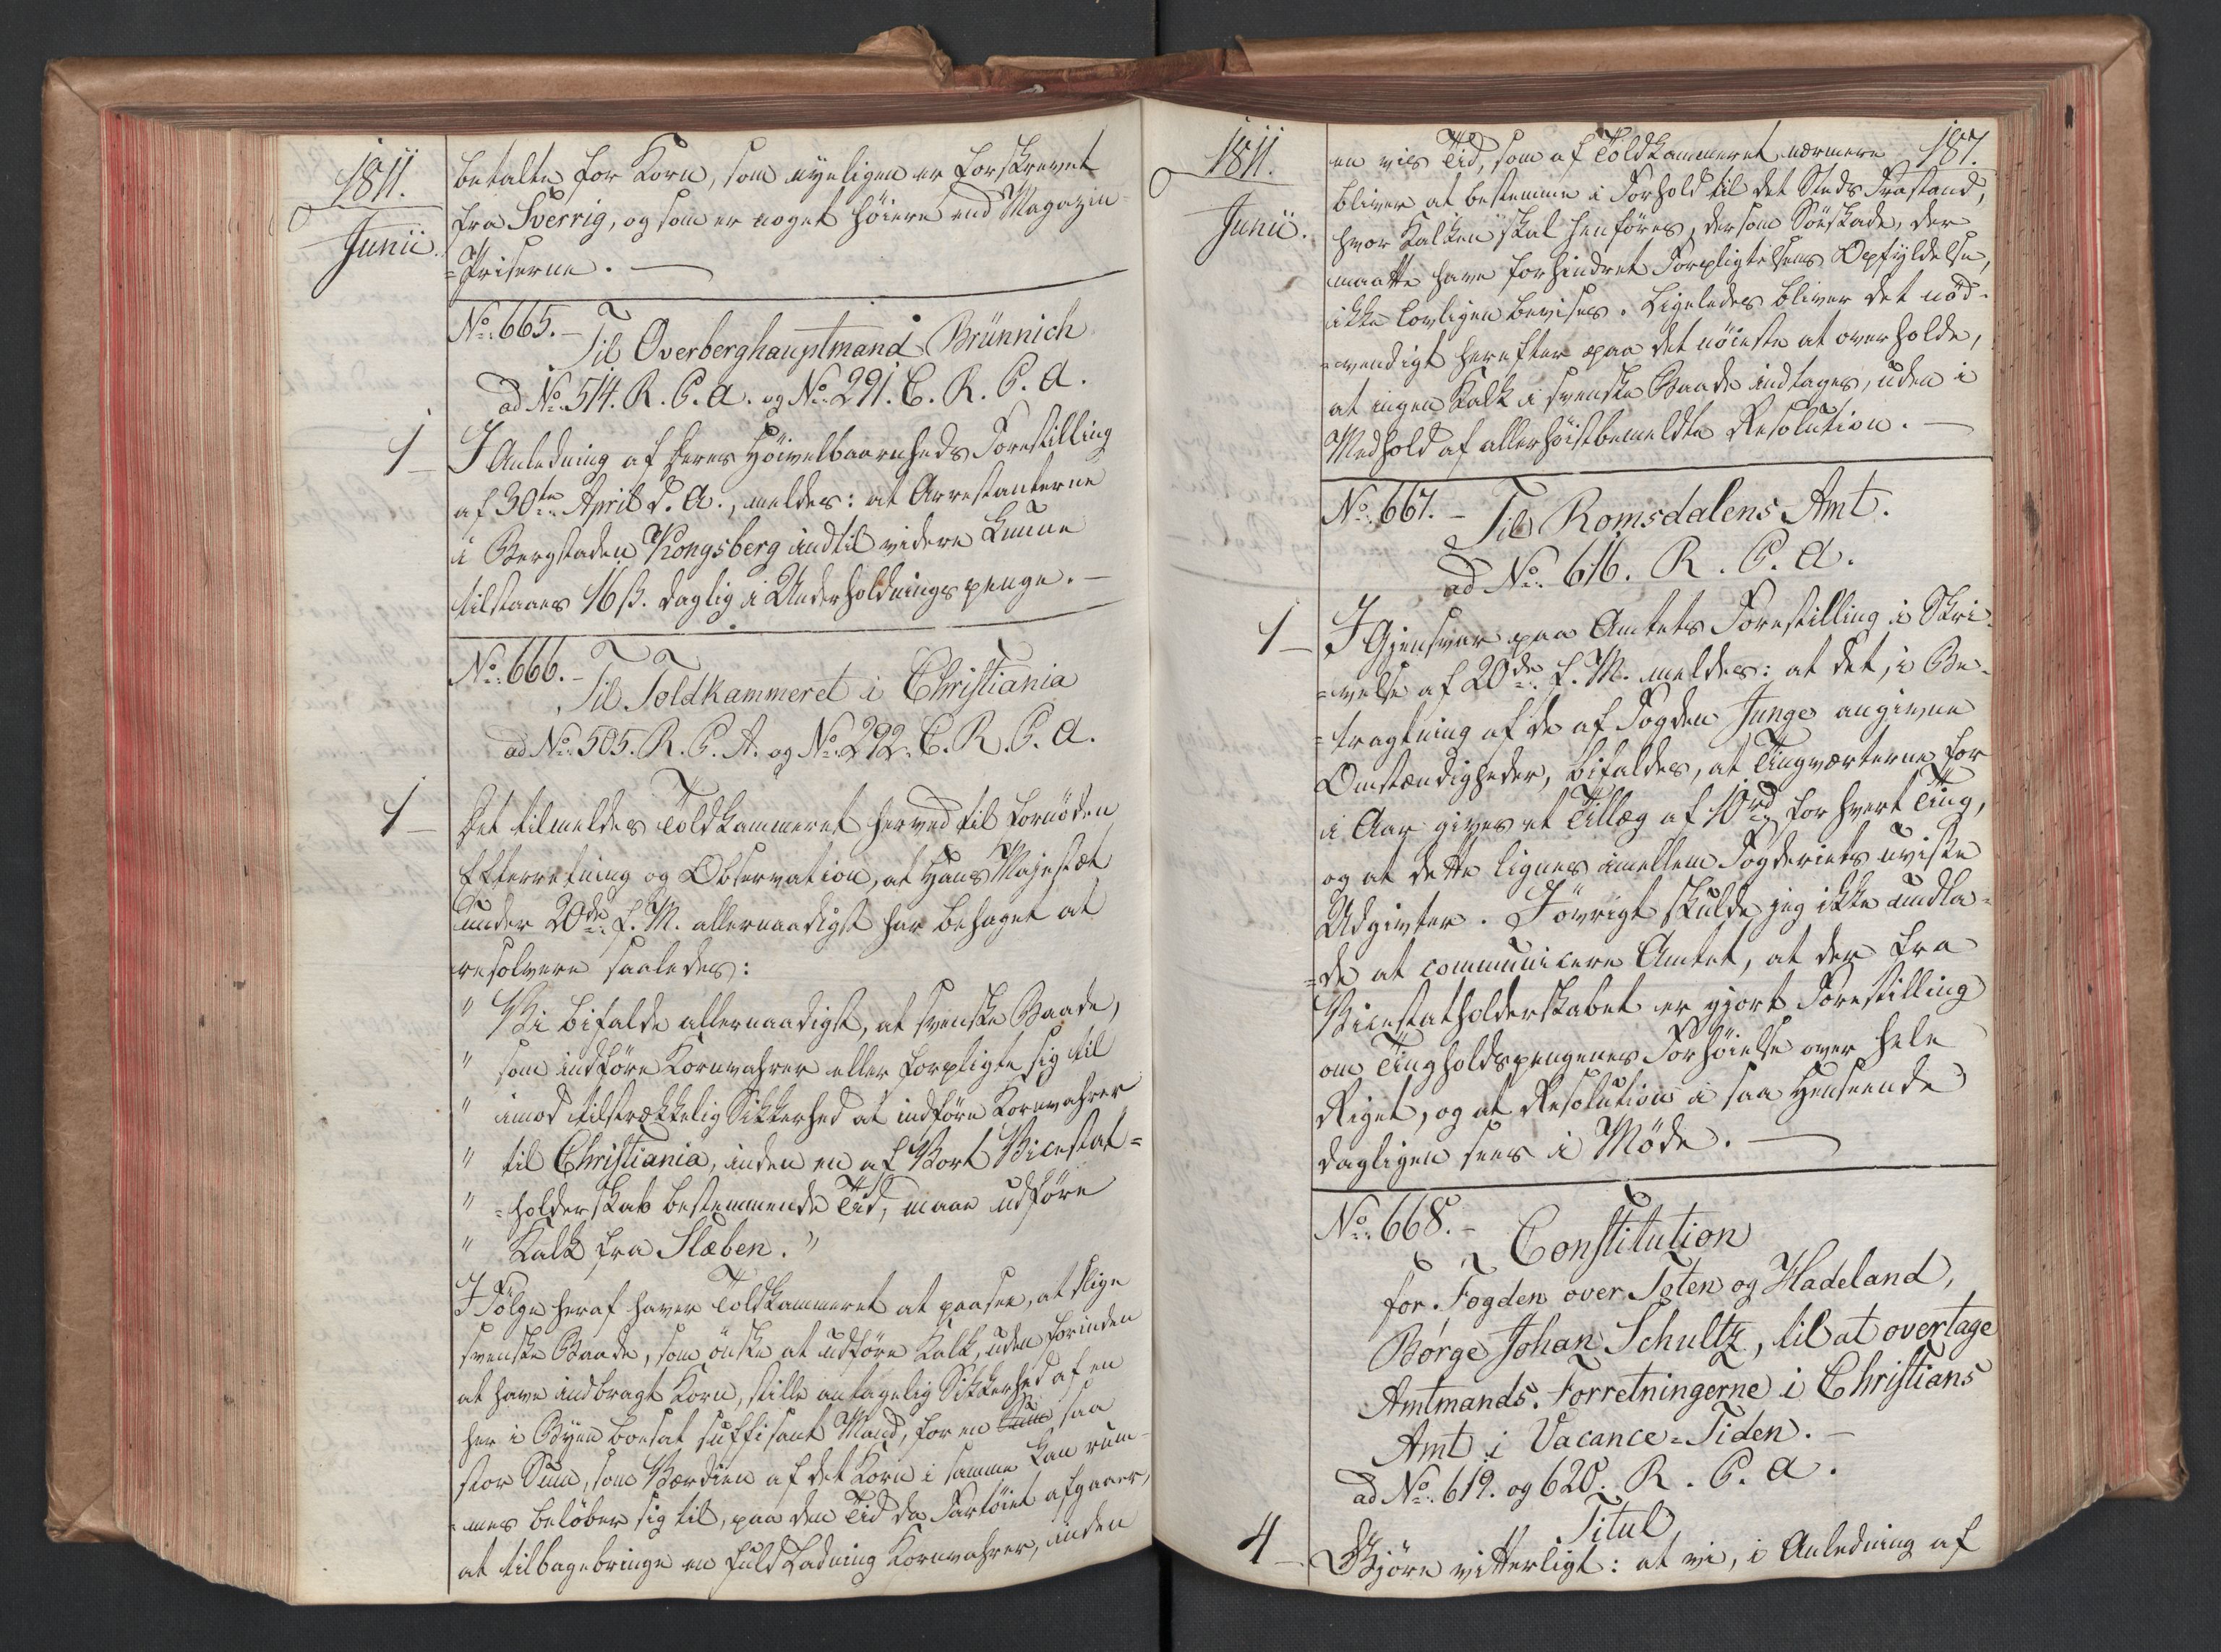 1811.
Junii.
betalte for Korn, som nyeligen er forskrevet
fra Sverrig, og som er noget höiere end Magazin-
=Priserne. —
No. 665. –
Til Overberghauptmand Brünnich
ad No. 514. R. C. A. og No. 291. C. R. C. A.
1 –
I Anledning af Deres Höivelbaarenheds Forestilling
af 30te April d. A., meldes: at Arrestanterne
i Bergstaden Kongsberg indtil videre kunne
tilstaaes 16 ß. daglig i Underholdningspenge. –
No. 666. –
Til Toldkammeret i Christiania
ad No. 505. R. C. A. og No. 292. C. R. C. A.
1 –
Det tilmeldes Toldkammeret herved til fornöden
Efterretning og Observation, at Hans Majestæt
under 20de f. M. allernaadigst har behaget at
resolvere saaledes:
" Vi bifalde allernaadigst, at svenske Baade,
" som indföre Kornvahrer eller forpligte sig til
" imod tilstrækkelig Sikkerhed at indföre Kornvahrer
" til Christiania, inden en af Vort Vicestat=
" =holderskab bestemmende Tid, maae udföre
" Kalk fra Slæben."
I Fölge heraf haver Toldkammeret at paasee, at slige
svenske Baade, som önske at udföre Kalk, uden forinden
at have indbragt Korn, stille antagelig Sikkerhed af en
her i Byen boesat suffisant Mand, for en saa
stor Sum, som Værdien af det Korn i samme kan rum-
=mes belöber sig til, paa den Tid da Fartöiet afgaaer,
at tilbagebringe en fuld Ladning Kornvahrer, inden
1811.
Junii.
187.
en vis Tid, som af Toldkammeret nærmere
bliver at bestemme i Forhold til det Steds Frastand,
hvor Kalken skal henföres, dersom Söeskade, der
maatte have forhindret Forpligtelsens Opfyldelse,
ikke lovligen bevises. Ligeledes bliver det nöd-
=vendigt herefter paa det nöieste at overholde,
at ingen Kalk i svenske Baade indtages, uden i
Medhold af allerhöistbemeldte Resolution. —
No. 667. – Til Romsdalens Amt.
ad No. 616. R. C. A.
1 –
I Gjensvar paa Amtets Forestilling i Skri-
=velse af 20de f. M. meldes: at det, i Be-
=tragtning af de af Fogden Junge angivne
Omstændigheder, bifaldes, at Tingværterne for
i Aar gives et Tillæg af 10 rd for hvert Ting,
og at dette lignes imellem Fogderiets uviste
Udgivter. I övrigt skulde jeg ikke undla-
=de at communicere Amtet, at der fra
Vicestatholderskabet er gjort Forestilling
om Tingholdspengenes Forhöielse over hele
Riget, og at Resolution i saa Henseende
dagligen sees i Möde. —
No. 668. –
Constitution
for Fogden over Toten og Hadeland,
Börge Johan Schultz, til at overtage
Amtmands. Forretningerne i Christians
Amt i Vacance-Tiden. –
ad No. 619. og 620. R. C. A.
Titul
4 –
Gjöre vitterligt: at vi, i Anledning af